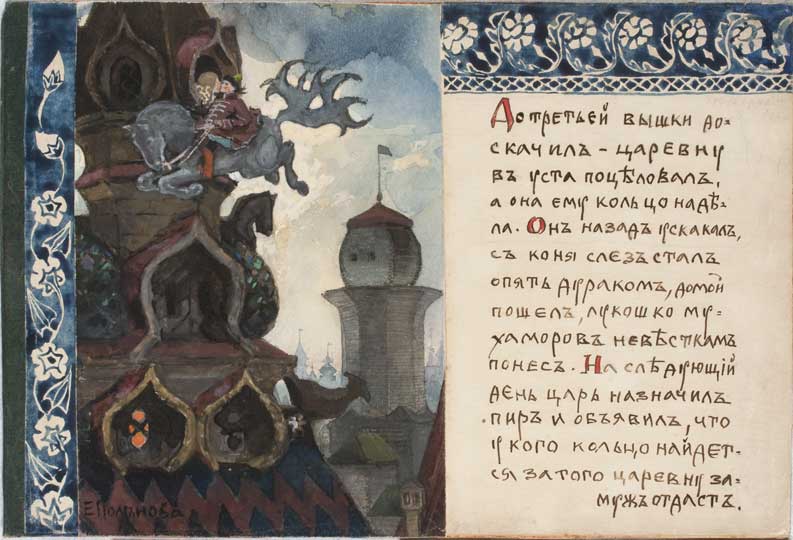 ЕПолѣнова
До третьей вышки до=
скачилъ – царевну
въ уста поцѣловалъ,
а она ему кольцо надѣ=
ла. Онъ назадъ ускакалъ,
съ коня слезъ сталъ
опять дуракомъ, домой
пошелъ, лукошко му=
хаморовъ невѣсткамъ
понесъ. На слѣдующій
день царь назначилъ
пиръ и объявилъ, что
у кого кольцо найдет=
ся за того царевну за=
мужъ отдастъ.